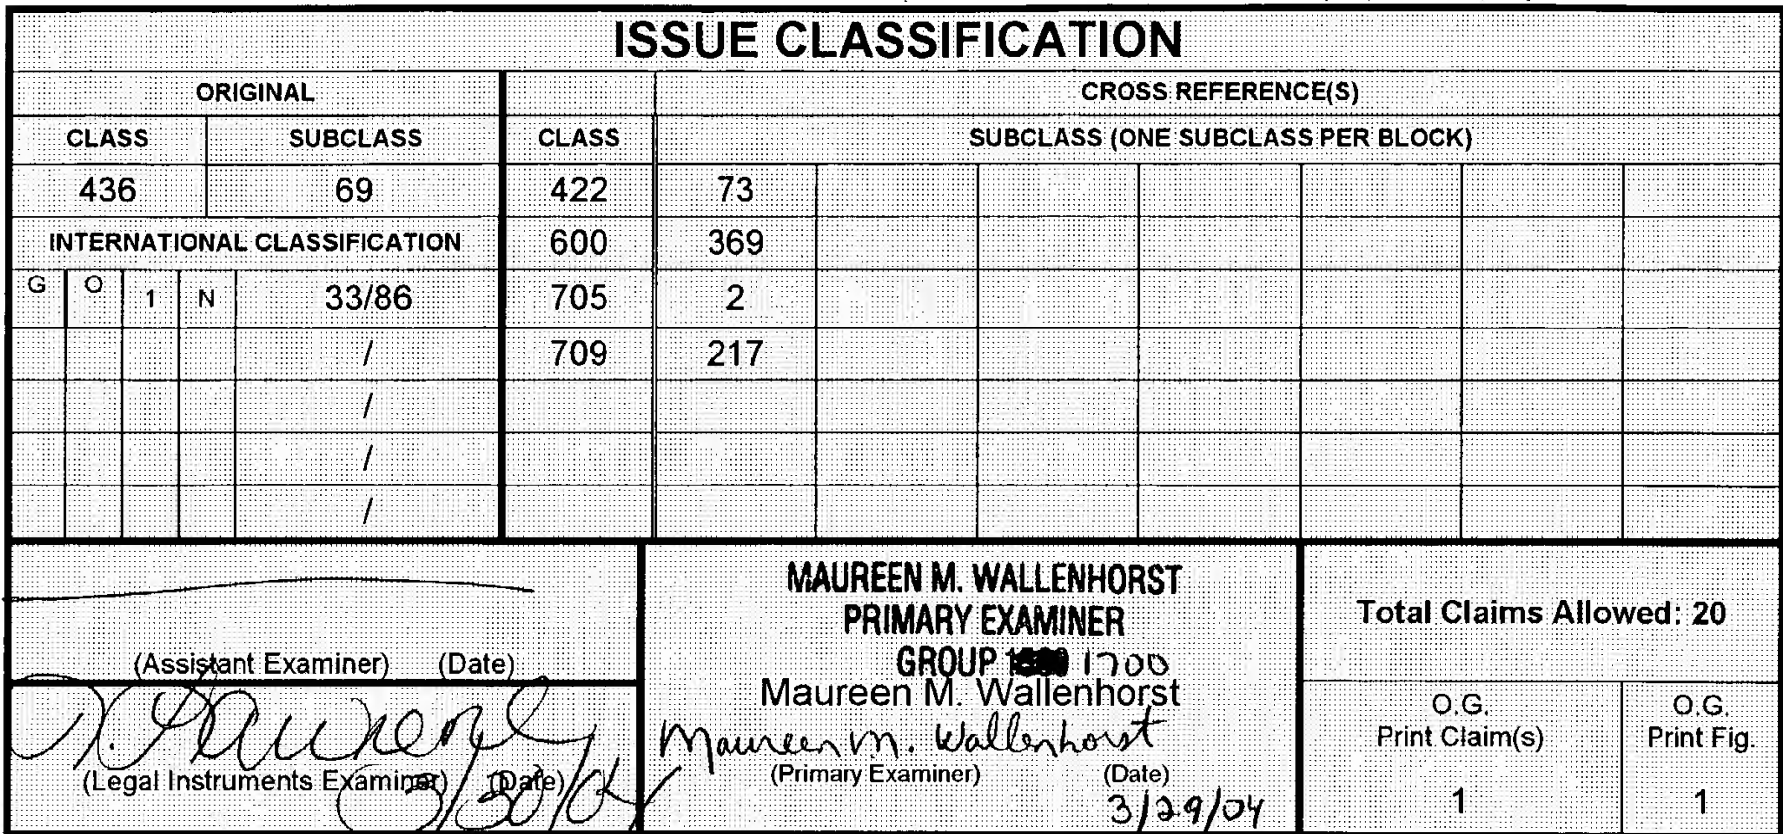 ISSUE CLASSIFICATION
ORIGINAL CROSS REFERENCE(S)
CLASS SUBCLASS CLASS SUBCLASS (ONE SUBCLASS PER BLOCK)
436 69 422 73
INTERNATIONAL CLASSIFICATION 600 369
G O 1 N 33/86 705 2
/ 709 217
/
/
/
(Assistant Examiner) (Date)
(Legal Instruments Examiner) (Date)
3/30/04
MAUREEN M. WALLENHORST
PRIMARY EXAMINER
GROUP 1700
Maureen M. Wallenhorst
Maureen M. Wallenhorst
(Primary Examiner) (Date)
3/29/04
Total Claims Allowed: 20
O.G.
Print Claim(s)
1
O.G.
Print Fig.
1